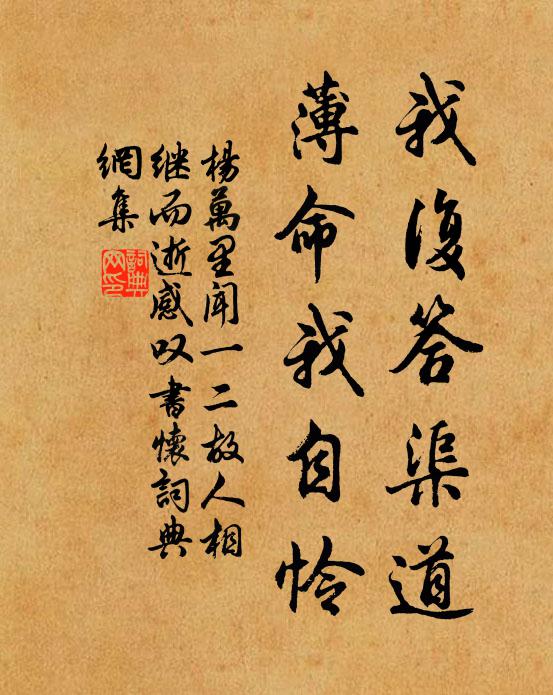 我復答渠道
薄命我自怜
楊萬里聞一二故人相
继而逝感叹書懷詞典
網集
詞典
网印